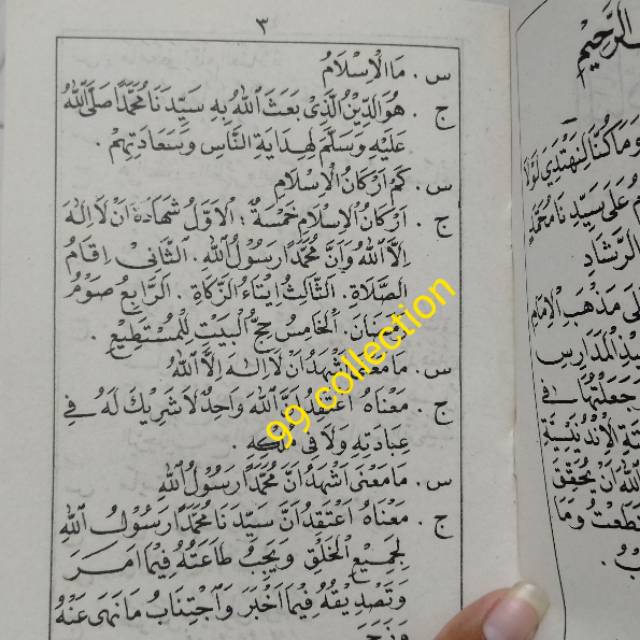 ٣
س . مَا الْاِسْلَامُ
ج . هُوَ الدِّيْنُ الَّذِيْ بَعَثَ اللّٰهُ بِهِ سَيِّدَنَا مُحَمَّدًا صَلَّى اللّٰهُ
عَلَيْهِ وَسَلَّمَ لِهِدَايَةِ النَّاسِ وَسَعَادَتِهِمْ .
س . كَمْ اَرْكَانُ الْاِسْلَامِ
ج . اَرْكَانُ الْاِسْلَامِ خَمْسَةٌ . اَلْاَوَّلُ شَهَادَةُ اَنْ لَا اِلٰهَ
اِلَّا اللّٰهُ وَاَنَّ مُحَمَّدًا رَسُوْلُ اللّٰهِ . اَلثَّانِيْ اِقَامُ
الصَّلَاةِ . اَلثَّالِثُ اِيْتَاءُ الزَّكَاةِ . اَلرَّابِعُ صَوْمُ
اَلْخَامِسُ حِجُّ الْبَيْتِ لِلْمُسْتَطِيْعِ .
س . مَا مَعْنَى اَشْهَدُ اَنْ لَا اِلٰهَ اِلَّا اللّٰهُ
ج . مَعْنَاهُ اَعْتَقِدُ اَنَّ اللّٰهَ وَاحِدٌ لَا شَرِيْكَ لَهُ فِيْ
عِبَادَتِهِ وَلَا فِيْ
س . مَا مَعْنَى اَشْهَدُ اَنَّ مُحَمَّدًا رَسُوْلُ اللّٰهِ
ج . مَعْنَاهُ اَعْتَقِدُ اَنَّ سَيِّدَنَا مُحَمَّدًا رَسُوْلُ اللّٰهِ
لِجَمِيْعِ الْخَلْقِ وَيَجِبُ طَاعَتُهُ فِيْمَا اَمَرَ
وَتَصْدِيْقُهُ فِيْمَا اَخْبَرَ وَاجْتِنَابُ مَا نَهَى عَنْهُ
وَزَجَرَ
99 collection
الرَّحِيْمِ
وَمَا كُنَّا لِنَهْتَدِيَ
عَلَى سَيِّدِنَا مُحَمَّدٍ
الرَّشَادِ
مَذْهَبِ الْاِمَامِ
الْمَدَارِسِ
جَعَلْتُهَا فِيْ